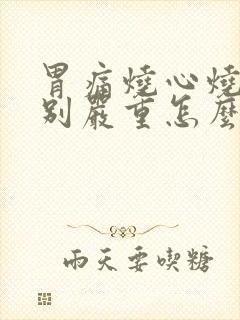 胃痛燒心燒
別嚴重怎麼
雨天要喫糖